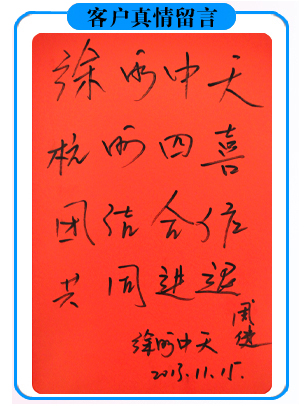 客户真情留言
徐州中天
杭州四喜
团结合作
共同进退
徐州中天
2013.11.15.